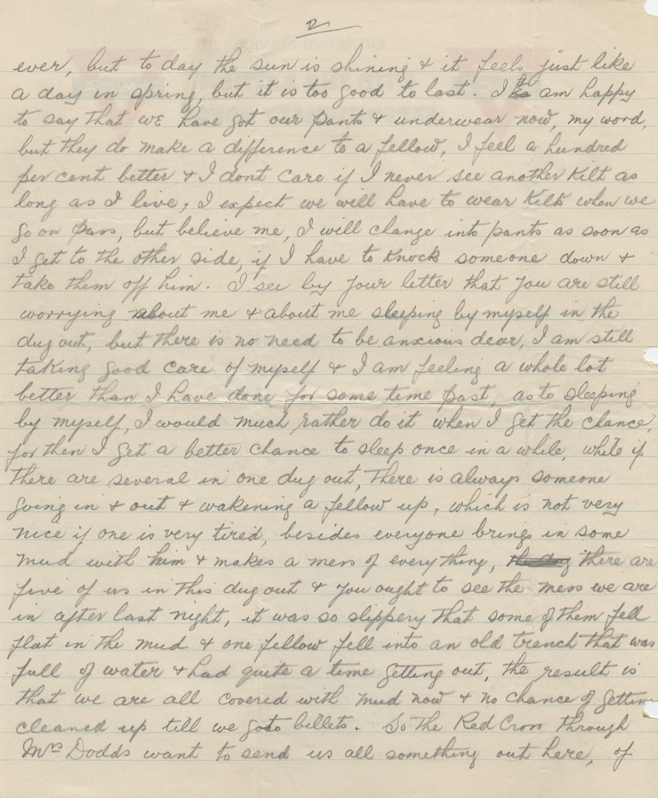 2
ever, but to day the sun is shining & it feels just like
a day in spring, but it is too good to last. I am happy
to say that we have got our pants & underwear now, my word,
but they do make a difference to a fellow, I feel a hundred
per cent better & I dont care if I never see another Kilt as
long as I live, I expect we will have to wear Kilts when we
go on pass, but believe me, I will change into pants as soon as
I get to the other side, if I have to Knock someone down &
take them off him. I see by your letter that you are still
worrying about me & about me sleeping by myself in the
dug out, but there is no need to be anxious dear, I am still
taking good care of myself & I am feeling a whole lot
better than I have done for some time past, as to sleeping
by myself, I would much rather do it when I get the chance,
for then I get a better chance to sleep once in a while, while if
there are several in one dug out, there is always someone
going in & out & wakening a fellow up, which is not very
nice if one is very tired, besides everyone brings in some
mud with him & makes a mess of everything, there are
five of us in this dug out & you ought to see the mess we are
in after last night, it was so slippery that some of them fell
flat in the mud & one fellow fell into an old trench that was
full of water & had quite a time getting out, the result is
that we are all covered with mud now & no chance of getting
cleaned up till we go to billets. So the Red Cross through
Mrs Dodds want to send us all something out here, of